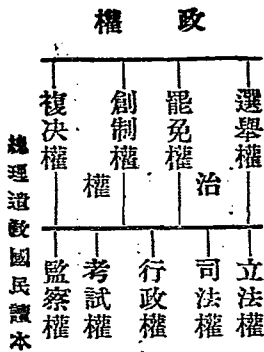 政權
選舉權
罷免權
創制權
複決權
治權
立法權
司法權
行政權
考試權
監察權
總理遺敎國民讀本